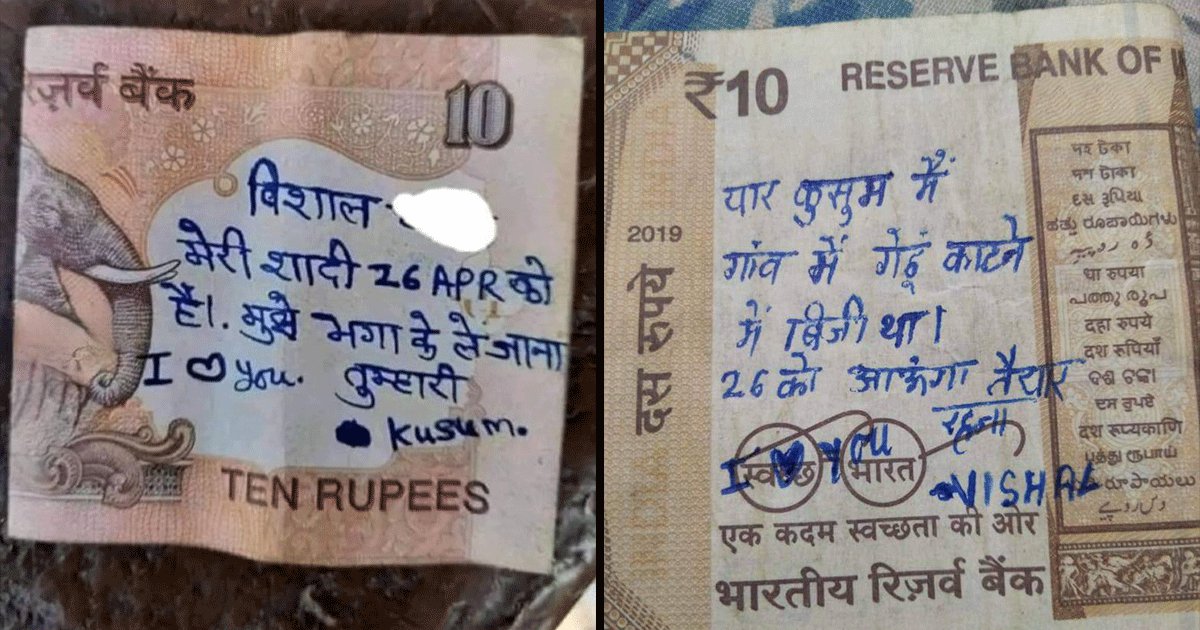 रिज़र्व बैंक
10
विशाल
मेरी शादी 26 APR को
है। मुझे भगा के ले जाना
I ♡ you. तुम्हारी
Kusum.
TEN RUPEES
₹10 RESERVE BANK OF
यार कुसुम मैं
गांव में गेहूं काटने
में बिजी था।
26 को आऊंगा तैयार
रहना
I ♥ you
VISHAL
स्वच्छ भारत
एक कदम स्वच्छता की ओर
भारतीय रिज़र्व बैंक
2019
दस रुपये
দহ টকা
দশ টাকা
દસ રૂપિયા
ಹತ್ತು ರೂಪಾಯಿಗಳು
धा रुपया
പത്തു രൂപ
दहा रुपये
दश रुपियाँ
ଦଶ ଟଙ୍କା
ਦਸ ਰੁਪਏ
दश रूप्यकाणि
பத்து ரூபாய்
రూపాయలు